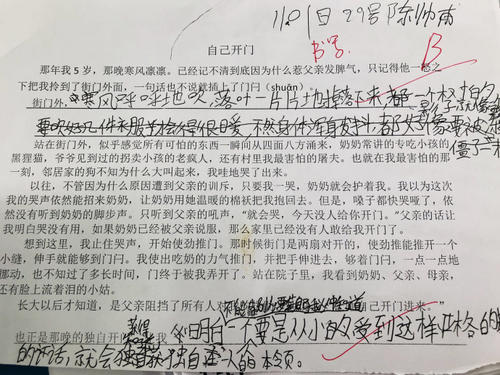 11月1日 29号 陈帅南
书写 B
自己开门
那年我 5 岁，那晚寒风凛凛。已经记不清到底因为什么惹父亲发脾气，只记得他一怒之
下把我拎到了街门外面，一句话也不说就插上了门闩（shuān）
街门外，寒风呼呼地吹，落叶一片片地掉落下来，都一个
要吹好几件衣服
站在街门外，似乎感觉所有可怕的东西一瞬间从四面八方涌来，奶奶常讲的专吃小孩的
黑狸猫，爷爷见到过的拐卖小孩的老疯人，还有村里我最害怕的屠夫。也就在我最害怕的那
一刻，邻居家的狗不知为什么大叫起来，我哇地哭了出来。
以往，不管因为什么原因遭到父亲的训斥，只要我一哭，奶奶就会护着我。我以为这次
我的哭声依然能招来奶奶，让奶奶用她温暖的棉袄把我抱回去。但是，嗓子都快哭哑了，依
然没有听到奶奶的脚步声。只听到父亲的吼声，“就会哭，今天没人给你开门。”父亲的话让
我明白哭没有用，如果奶奶已经被父亲说服，那么家里已经没有人敢给我开门了。
想到这里，我止住哭声，开始使劲推门。那时候街门是两扇对开的，使劲推能推开一个
小缝，伸手就能够到门闩。我使出吃奶的力气推门，并把手伸进去，够着门闩，一点一点地
挪动，也不知过了多长时间，门终于被我弄开了。站在院子里，我看到奶奶、父亲、母亲，
还有脸上流着泪的小姑。
长大以后才知道，是父亲阻挡了所有人对 自己开进来。”
也正是那晚的独自开 我 明白一 要是从小 受到这样严格的
的话，就会 获 独自 人的本领。